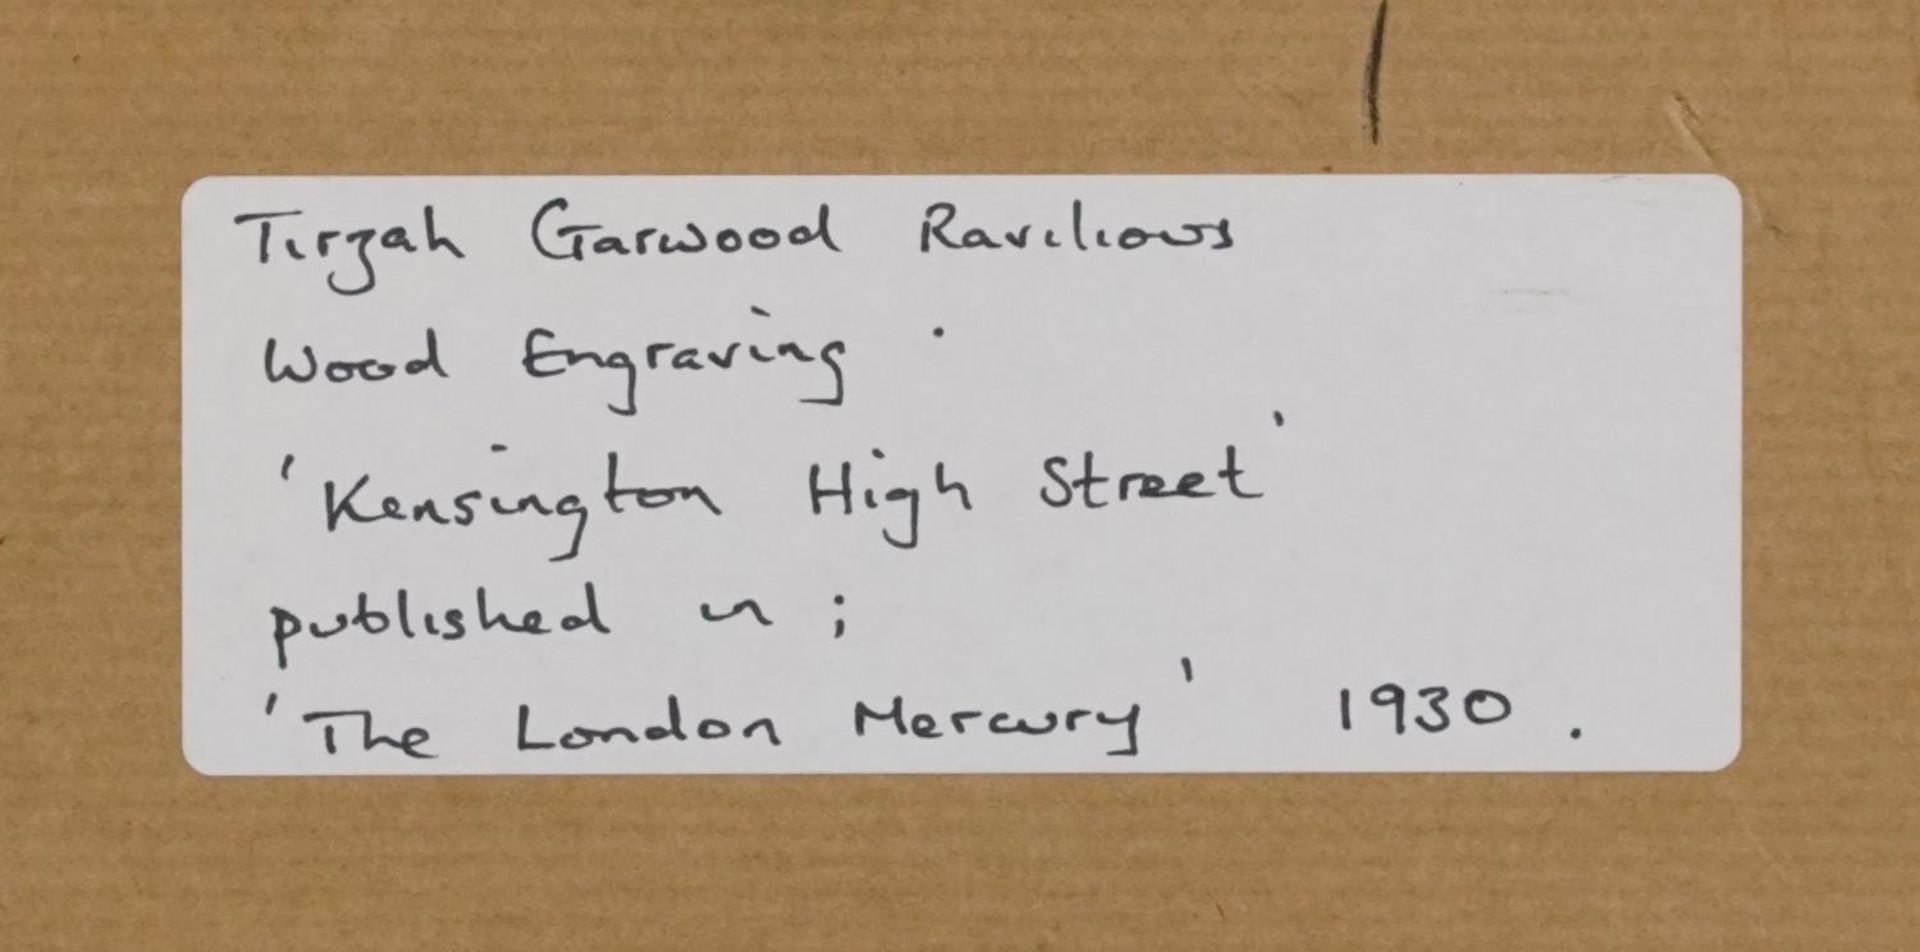 Tirzah Garwood Ravilious
Wood Engraving.
'Kensington High Street'
published in ;
'The London Mercury' 1930.